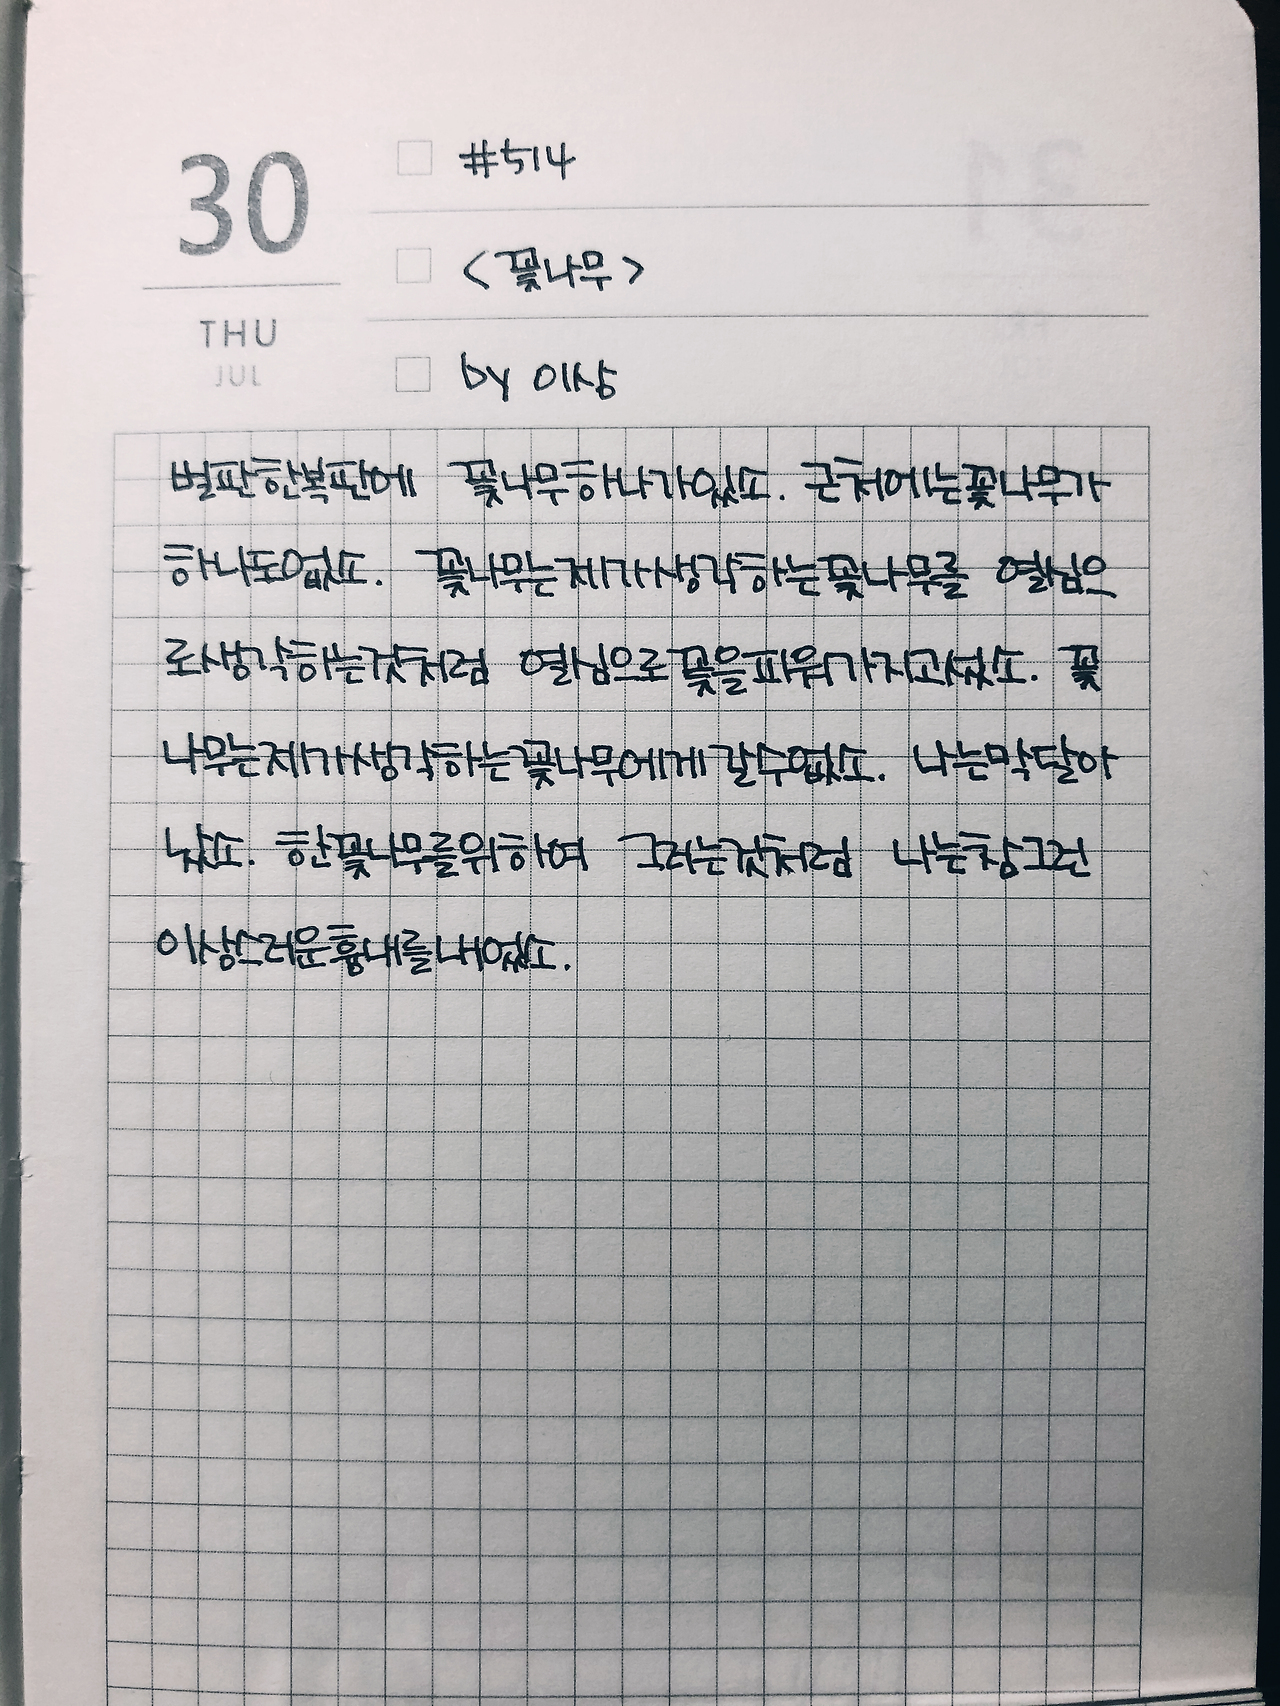 30
THU
JUL
#514
<꽃나무>
by 이상
벌판한복판에 꽃나무하나가있소. 근처에는꽃나무가
하나도없소. 꽃나무는제가생각하는꽃나무를 열심으
로생각하는것처럼 열심으로꽃을피워가지고섰소. 꽃
나무는제가생각하는꽃나무에게갈수없소. 나는막달아
났소. 한꽃나무를위하여 그러는것처럼 나는참그런
이상스러운흉내를내었소.